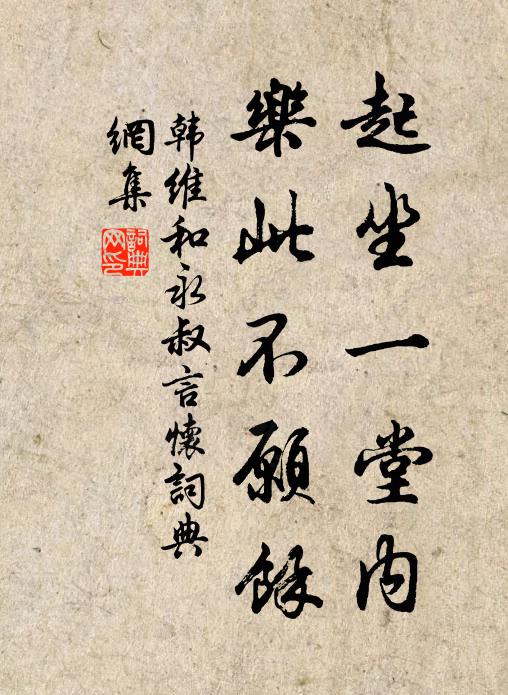 起坐一堂內
樂此不願餘
韩维和永叔言懷詞典
網集
詞典
网印